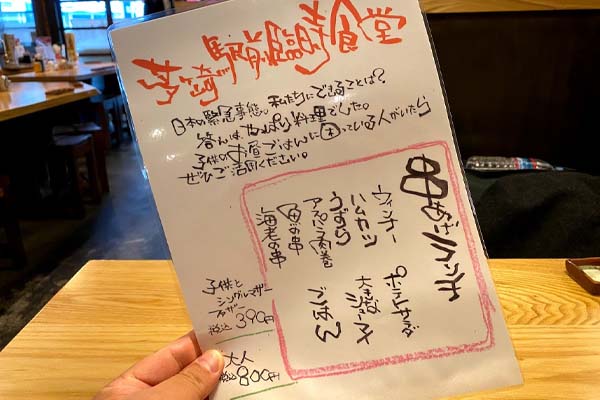 茅ヶ崎駅前臨時食堂
日本の緊急事態。私たちにできることは?
答えは、やっぱり料理でした。
子供のお昼ごはんに困っている人がいたら
ぜひご活用ください。
串あげランチ
ウィンナー
ハムカツ
うずら
アスパラ肉巻
魚の串
海老の串
ポテトサラダ
大きなシューマイ
ごはん
子供と
シングルマザー
ファザー
税込390円
大人
税込800円